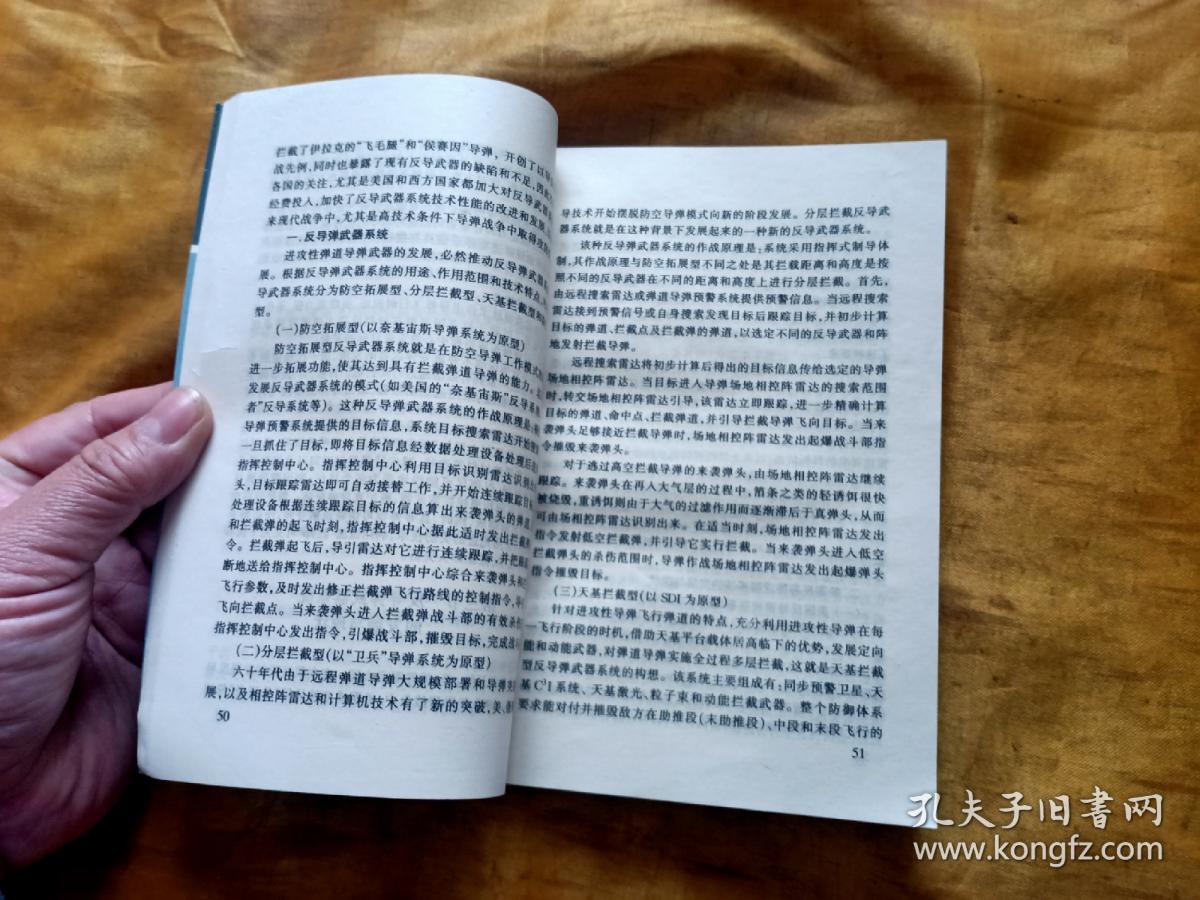 拦截了伊拉克的“飞毛腿”和“侯赛因”导弹，开创了以
战先例，同时也暴露了现有反导武器的缺陷和不足，因
各国的关注，尤其是美国和西方国家都加大对反导武
经费投入，加快了反导武器系统技术性能的改进和发展
来现代战争中，尤其是高技术条件下导弹战争中取得
一.反导弹武器系统
进攻性弹道导弹武器的发展，必然推动反导弹武
展。根据反导弹武器系统的用途、作用范围和技术特点
导武器系统分为防空拓展型、分层拦截型、天基拦截型
型。
(一)防空拓展型(以奈基宙斯导弹系统为原型)
防空拓展型反导武器系统就是在防空导弹工作模式
进一步拓展功能，使其达到具有拦截弹道导弹的能力。
发展反导武器系统的模式(如美国的“奈基宙斯”反导系
者”反导系统等)。这种反导弹武器系统的作战原理是
导弹预警系统提供的目标信息，系统目标搜索雷达开始
一旦抓住了目标，即将目标信息经数据处理设备处理后
指挥控制中心。指挥控制中心利用目标识别雷达识
头，目标跟踪雷达即可自动接替工作，并开始连续跟踪目
处理设备根据连续跟踪目标的信息算出来袭弹头的弹道
和拦截弹的起飞时刻，指挥控制中心据此适时发出拦截
令。拦截弹起飞后，导引雷达对它进行连续跟踪，并把跟
断地送给指挥控制中心。指挥控制中心综合来袭弹头和
飞行参数，及时发出修正拦截弹飞行路线的控制指令，
飞向拦截点。当来袭弹头进入拦截弹战斗部的有效杀
指挥控制中心发出指令，引爆战斗部，摧毁目标，完成
(二)分层拦截型(以“卫兵”导弹系统为原型)
六十年代由于远程弹道导弹大规模部署和导弹突
展，以及相控阵雷达和计算机技术有了新的突破，美、
50
导技术开始摆脱防空导弹模式向新的阶段发展。分层拦截反导武
器系统就是在这种背景下发展起来的一种新的反导武器系统。
该种反导弹武器系统的作战原理是：系统采用指挥式制导体
制，其作战原理与防空拓展型不同之处是其拦截距离和高度是按
照不同的反导武器在不同的距离和高度上进行分层拦截。首先，
由远程搜索雷达或弹道导弹预警系统提供预警信息。当远程搜索
雷达接到预警信号或自身搜索发现目标后跟踪目标，并初步计算
目标的弹道、拦截点及拦截弹的弹道，以选定不同的反导武器和阵
地发射拦截导弹。
远程搜索雷达将初步计算后得出的目标信息传给选定的导弹
场地相控阵雷达。当目标进入导弹场地相控阵雷达的搜索范围
时，转交场地相控阵雷达引导，该雷达立即跟踪，进一步精确计算
目标的弹道、命中点、拦截弹道，并引导拦截导弹飞向目标。当来
袭弹头足够接近拦截导弹时，场地相控阵雷达发出起爆战斗部指
令摧毁来袭弹头。
对于逃过高空拦截导弹的来袭弹头，由场地相控阵雷达继续
跟踪。来袭弹头在再入大气层的过程中，箔条之类的轻诱饵很快
被烧毁，重诱饵则由于大气的过滤作用而逐渐滞后于真弹头，从而
可由场相控阵雷达识别出来。在适当时刻，场地相控阵雷达发出
指令发射低空拦截弹，并引导它实行拦截。当来袭弹头进入低空
拦截弹头的杀伤范围时，导弹作战场地相控阵雷达发出起爆弹头
指令摧毁目标。
(三)天基拦截型(以 SDI 为原型)
针对进攻性导弹飞行弹道的特点，充分利用进攻性导弹在每
一飞行阶段的时机，借助天基平台载体居高临下的优势，发展定向
能和动能武器，对弹道导弹实施全过程多层拦截，这就是天基拦截
型反导弹武器系统的构想。该系统主要组成有：同步预警卫星、天
基 C³I 系统、天基激光、粒子束和动能拦截武器。整个防御体系
要求能对付并摧毁敌方在助推段(末助推段)、中段和末段飞行的
51
孔夫子旧書网
www.kongfz.com